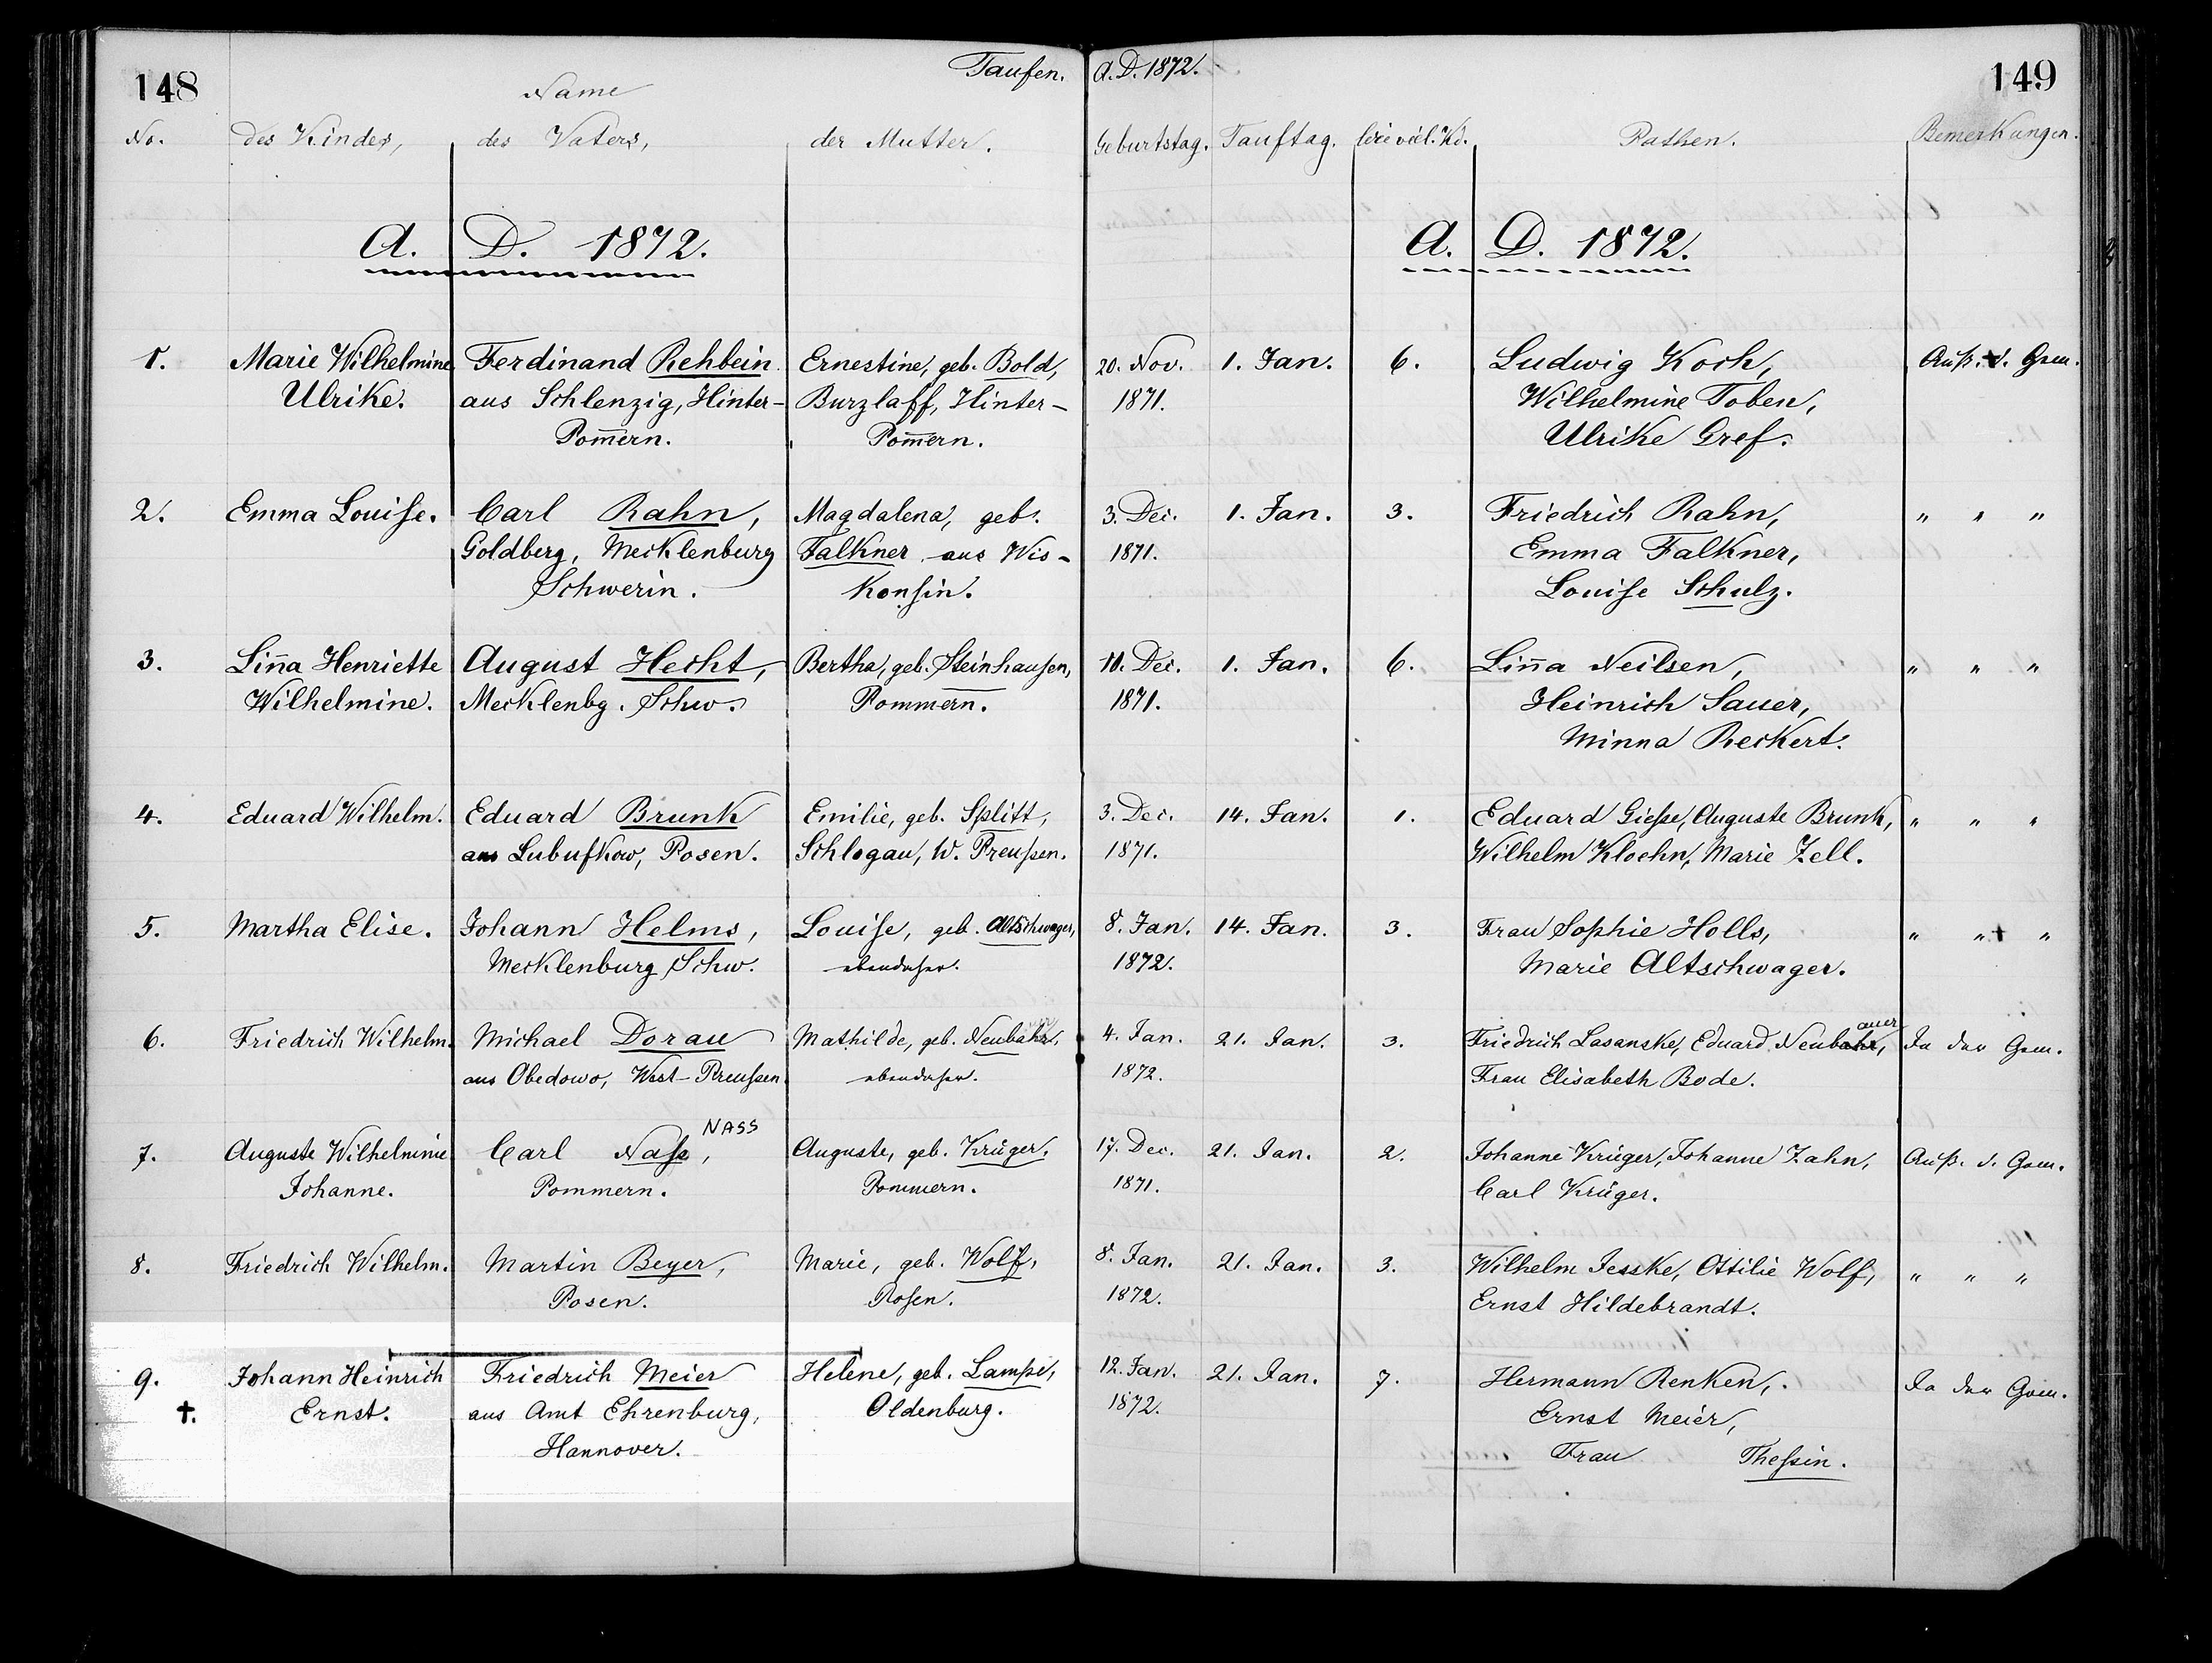 148
Taufen.
A. D. 1872.
149
Name
No.
des Kindes,
des Vaters,
der Mutter.
Geburtstag.
Tauftag.
Wie viel. Kd.
Pathen.
Bemerkungen.
A. D. 1872.
A. D. 1872.
1. Marie Wilhelmine Ferdinand Rehbein Ernestine, geb. Bold, 20. Nov. 1. Jan. 6. Ludwig Koch, Auß. d. Gem.
Ulrike. aus Schlenzig, Hinter- Burzlaff, Hinter- 1871. Wilhelmine Toben,
Pom̄ern. Pom̄ern. Ulrike Gref.
2. Emma Louiſe. Carl Rahn, Magdalena, geb. 3. Dec. 1. Jan. 3. Friedrich Rahn, " " "
Goldberg, Mecklenburg Falkner aus Wis- 1871. Emma Falkner,
Schwerin. konſin. Louiſe Schulz.
3. Lin̄a Henriette August Hecht, Bertha, geb. Steinhauſen, 10. Dec. 1. Jan. 6. Lin̄a Neilsen, " " "
Wilhelmine. Mecklenbg. Schw. Pommern. 1871. Heinrich Sauer,
Minna Reckert.
4. Eduard Wilhelm. Eduard Brunk Emilie, geb. Splitt, 3. Dec. 14. Jan. 1. Eduard Gieſse, Auguste Brunk, " " "
aus Lubuſkow, Posen. Schlogau, W. Preuſsen. 1871. Wilhelm Kloehn, Marie Zell.
5. Martha Elise. Johann Helms, Louiſe, geb. Altschwager, 8. Jan. 14. Jan. 3. Frau Sophie Holls, " " "
Mecklenburg Schw. ebendaher. 1872. Marie Altschwager.
6. Friedrich Wilhelm. Michael Dorau Mathilde, geb. Neubahr, 4. Jan. 21. Jan. 3. Friedrich Lasanske, Eduard Neubahr, auer In der Gem.
aus Obedowo, West-Preuſsen. ebendaher. 1872. Frau Elisabeth Bode.
NASS
7. Auguste Wilhelmine Carl Naſs, Auguste, geb. Krüger. 17. Dec. 21. Jan. 2. Johanne Krüger, Johanne Zahn, Auß. d. Gem.
Johanne. Pommern. Pommern. 1871. Carl Krüger.
8. Friedrich Wilhelm. Martin Beyer, Marie, geb. Wolf, 8. Jan. 21. Jan. 3. Wilhelm Jesske, Ottilie Wolf, " " "
Posen. Poſen. 1872. Ernst Hildebrandt.
9. Johann Heinrich Friedrich Meier Helene, geb. Lampe, 12. Jan. 21. Jan. 7. Hermann Renken, In der Gem.
†. Ernst. aus Amt Ehrenburg, Oldenburg. 1872. Ernst Meier,
Hannover. Frau Theſsin.